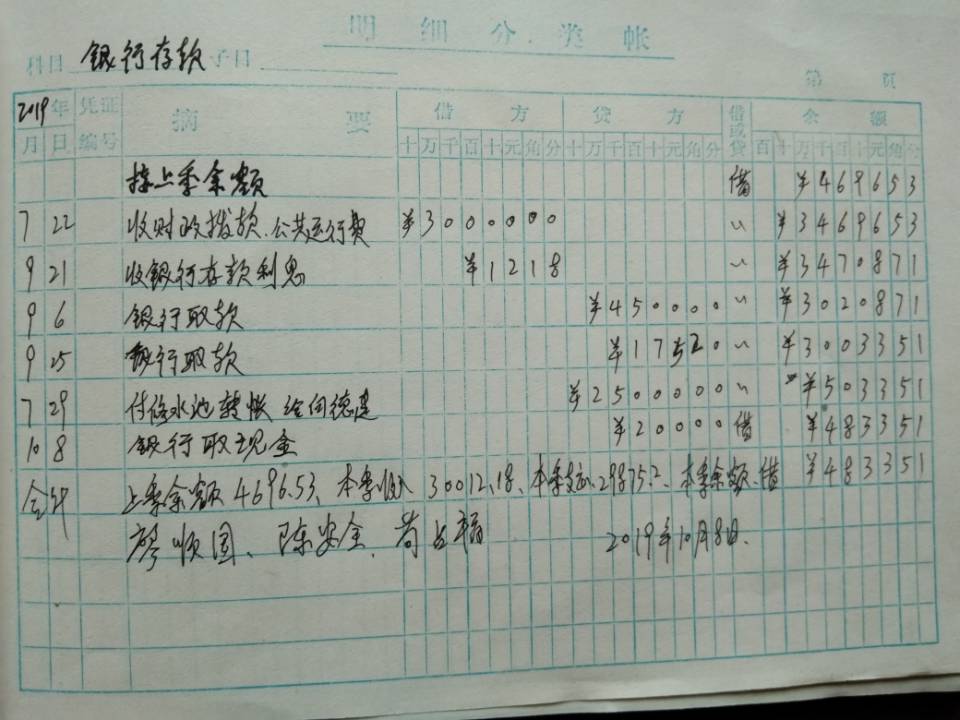 明细分类帐
科目 银行存款 子目
第 页
2019年 凭证 摘要 借方 贷方 借或贷 余额
月 日 编号 十万千百十元角分 十万千百十元角分 百十万千百十元角分
接上季余额 借 ¥469653
7 22 收财政拨款.公共运行费 ¥3000000 〃 ¥3469653
9 21 收银行存款利息 ¥1218 〃 ¥3470871
9 6 银行取款 ¥450000 〃 ¥3020871
9 25 银行取款 ¥17520 〃 ¥3003351
7 29 付修水池转帐 给向德建 ¥2500000 〃 ¥503351
10 8 银行取现金 ¥20000 借 ¥483351
合计 上季余额4696.53、本季收入30012.18、本季支出29875.2、本季余额、借 ¥483351
廖顺国、陈安全、苟 2019年10月8日.